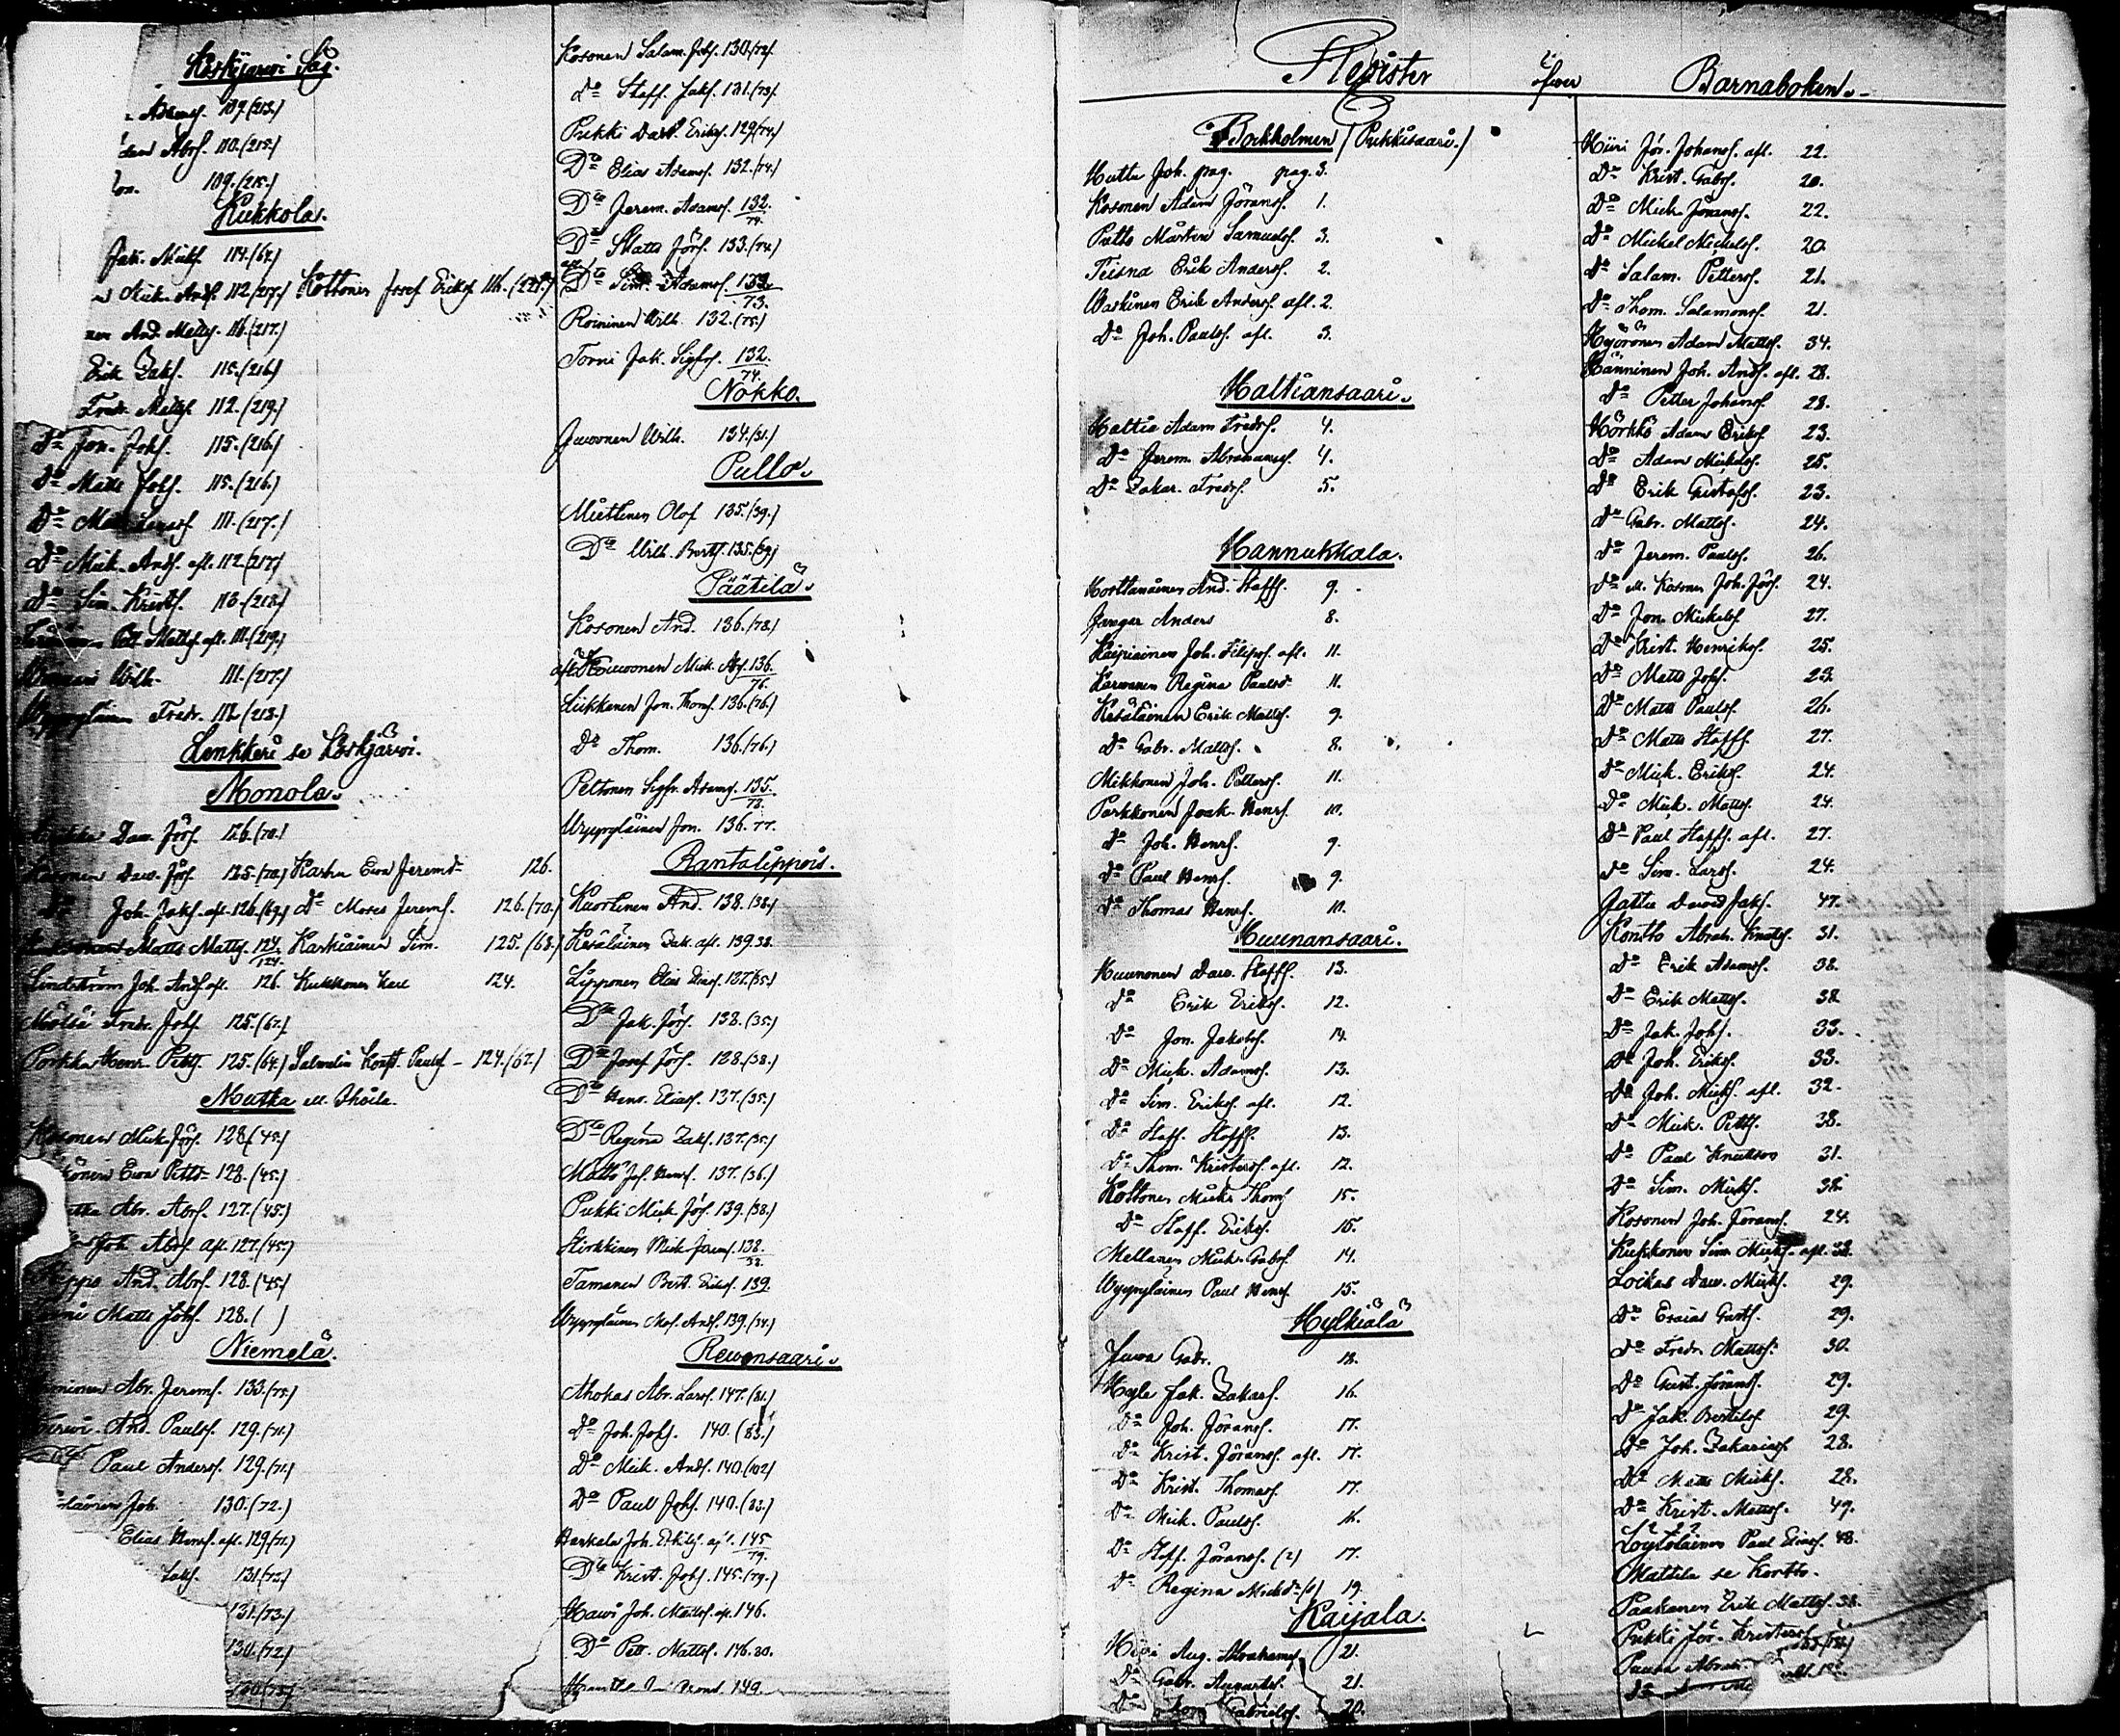 Koskijarwi Såg.
Adamsf. 109.(213.)
Abrsf. 110.(215.)
109.(215.)
Kukkola.
Jak. Mickf. 114.(64.)
Mick. Andsf. 112.(217.) Kottonen Josef Eriksf. 116.(221.)
And. Mattsf. 116.(217.)
Erik Zaksf. 115.(216.)
Fredr. Mattsf. 112.(219.)
Do Jon. Johsf. 115.(216.)
Do Matts Johsf. 115.(216.)
Do 111.(217.)
Do Mick. Andsf. afl. 112.(217.)
Do Sim. Kristsf. 113.(218.)
Pett. Mattsf. afl. 111.(219.)
Wilh. 111.(217.)
Wyyryläinen Fredr. 112.(218.)
Lenkkeri se Koskijärwi.
Monola.
Daw. Jörsf. 126.(70.)
Kosonen Daw. Jörsf. 125.(70.) Karhu Ewa Jeremsd. 126.
Do Joh. Jaksf. afl. 126.(69.) Do Moses Jeremsf. 126.(70.)
Matts Mattsf. 124. Karhiainen Sim. 125.(68.)
Lindström Joh. Andsf. afl. 126. Kukkonen Karl 124.
Mölsä Fredr. Johsf. 125.(67.)
Porkka Henr. Pettsf. 125.(64.) Salmelin Krist. Paulsf. 124.(67.)
Mutka ell. Ihoila.
Kosonen Mick. Jörsf. 128.(45.)
Ewa Pettsd. 128.(45.)
Abr. Abrsf. 127.(45.)
Joh. Abrsf. afl. 127.(45.)
And. Abrsf. 128.(45.)
Matts Johsf. 128.( )
Niemelä.
Abr. Jeremsf. 133.(75.)
And. Paulsf. 129.(71.)
Paul Andersf. 129.(71.)
Joh. 130.(72.)
Elias Henrsf. afl. 129.(71.)
131.(73.)
131.(73.)
130.(72)
Kosonen Salam. Johsf. 130.(72).
Do Staff. Jaksf. 131.(73).
Pukki Dawd. Eriksf. 129.(74.)
Do Elias Adamsf. 132.(74.)
Do Jerem. Adamsf. 132. 74.
Do Matts Jörsf. 133.(74.)
afl. Do Sim. Adamsf. 132. 73.
Roininen Wilh. 132.(75.)
Torni Jak. Sigfrsf. 132. 74.
Nokko.
Juwonen Wilh. 134.(31.)
Pullo.
Miettinen Olof 135.(39.)
Do Wilh. Bertsf. 135.(39)
Päätilä.
Kosonen And. 136.(78.)
afl. Kouwonen Mick. Abrsf. 136. 76.
Liikkanen Jon. Thomsf. 136.(76.)
Do Thom. 136.(76.)
Peltonen Sigfr. Adamsf. 135. 78.
Wyyryläinen Jon. 136. 77.
Rantalippois.
Kuortinen And. 138.(38.)
Kesäläinen Zak. afl. 139.38.
Lipponen Elias Eliasf. 137.(35.)
Do Jak. Jörsf. 138.(35.)
Do Josef Jörsf. 128.(38.)
Do Henr. Eliasf. 137.(35.)
Do Regina Zaksf. 137.(35.)
Matts Jos. Henrsf. 137.(36.)
Pukki Mick. Jörsf. 139.(38.)
Hirkkinen Mick. Jeremsf. 138. 38.
Tamanen Bert. Eriksf. 139.
Wyyryläinen Mos. Andsf. 139.(34.)
Rewonsaari.
Ahokas Abr. Larsf. 147.(81.)
Do Joh. Johsf. 140.(83.)
Do Mick. Andsf. 140.(102)
Do Paul Johsf. 140.(83.)
Harkala Joh. Erikssf. afl. 145 79.
Do Krist. Johsf. 145.(79.)
Hawi Joh. Mattsf. afl. 146.
Do Pett. Mattsf. 146.80.
149.
Register öfwer Barnaboken.
Bockholmen (Pukkisaari.)
Hutta Joh. pag. pag. 3.
Kosonen Adam Jöransf. 1.
Putto Mårten Samuelsf. 3.
Teisna Erik Andersf. 2.
Waskinen Erik Andersf. afl. 2.
Do Joh. Paulsf. afl. 3.
Haltiansaari.
Haltia Adam Fredrsf. 4.
Do Jerem. Abrahamsf. 4.
Do Zakar. Fredrsf. 5.
Hannukkala.
Horttanainen And. Staffsf. 9.
Jangar Anders 8.
Kaipiainen Joh. Filipsf. afl. 11.
Karwanen Regina Paulsd. 11.
Kesäläinen Erik Mattsf. 9.
Do Gabr. Mattsf. 8.
Mikkonen Joh. Pettersf. 11.
Parkkonen Joak. Henrsf. 10.
Do Joh. Henrsf. 9.
Do Paul Henrsf. 9.
Do Thomas Henrsf. 10.
Huunansaari.
Huunonen Daw. Staffsf. 13.
Do Erik Eriksf. 12.
Do Jon. Jakobsf. 14.
Do Mick. Adamsf. 13.
Do Sim. Eriksf. afl. 12.
Do Staff. Staffsf. 13.
Do Thom. Kristersf. afl. 12.
Kottonen Mick. Thomsf. 15.
Do Staff. Eriksf. 15.
Mellanen Mick. Gabrsf. 14.
Wyyryläinen Paul Henrsf. 15.
Hylkiälä
Juwa Gabr. 18.
Hyle Jak. Zakarsf. 16.
Do Joh. Jöransf. 17.
Do Krist. Jöransf. afl. 17.
Do Krist. Thomasf. 17.
Do Mick. Paulsf. 16.
Do Staff. Jöransf. (2) 17.
Do Regina Micksd. 19.
Kaijala.
Hiiri Aug. Abrahamsf. 21.
Do Gabr. Augustsf. 21.
Do Gabrielsf. 20.
Hiiri Jör. Johansf. afl. 22.
Do Krist. Gabrsf. 20.
Do Mick. Jöransf. 22.
Do Mickel Mickelsf. 20.
Do Salam. Pettersf. 21.
Do Thom. Salamonsf. 21.
Hyörönen Adam Mattsf. 34.
Hänninen Joh. Andsf. afl. 28.
Do Petter Johansf. 28.
Hörkkö Adam Eriksf. 23.
Do Adam Mickelsf. 25.
Do Erik Gustafsf. 23.
Do Gabr. Mattsf. 24.
Do Jerem. Paulsf. 26.
Do ell. Kosonen Joh. Jörsf. 24.
Do Jon. Mickelsf. 27.
Do Krist. Henriksf. 25.
Do Matts Johsf. 23.
Do Matts Paulsf. 26.
Do Matts Staffsf. 27.
Do Mick. Eriksf. 24.
Do Mick. Mattsf. 24.
Do Paul Staffsf. afl. 27.
Do Sim. Larsf. 24.
Jattu Dawid Jaksf. 47.
Kontto Abrah. Knutsf. 31.
Do Erik Adamsf. 38.
Do Erik Mattsf. 38.
Do Jak. Johsf. 33.
Do Joh. Eriksf. 33.
Do Joh. Micksf. afl. 32.
Do Mick. Pettsf. 38.
Do Paul Knutsson 31.
Do Sim. Micksf. 38.
Kosonen Joh. Jöransf. 24.
Kukkonen Sim. Micksf. afl. 38.
Loikas Daw. Micksf. 29.
Do Esaias Gustsf. 29.
Do Fredr. Mattsf. 30.
Do Gust. Jöransf. 29.
Do Jak. Bertilsf. 29.
Do Joh. Zakariasf. 28.
Do Matts Micksf. 28.
Do Krist. Mattsf. 49.
Löytöläinen Paul Eliasf. 48.
Mattila se Kontto.
Paakanen Erik Mattsf. 38.
Pukki Jör. Kristersf.